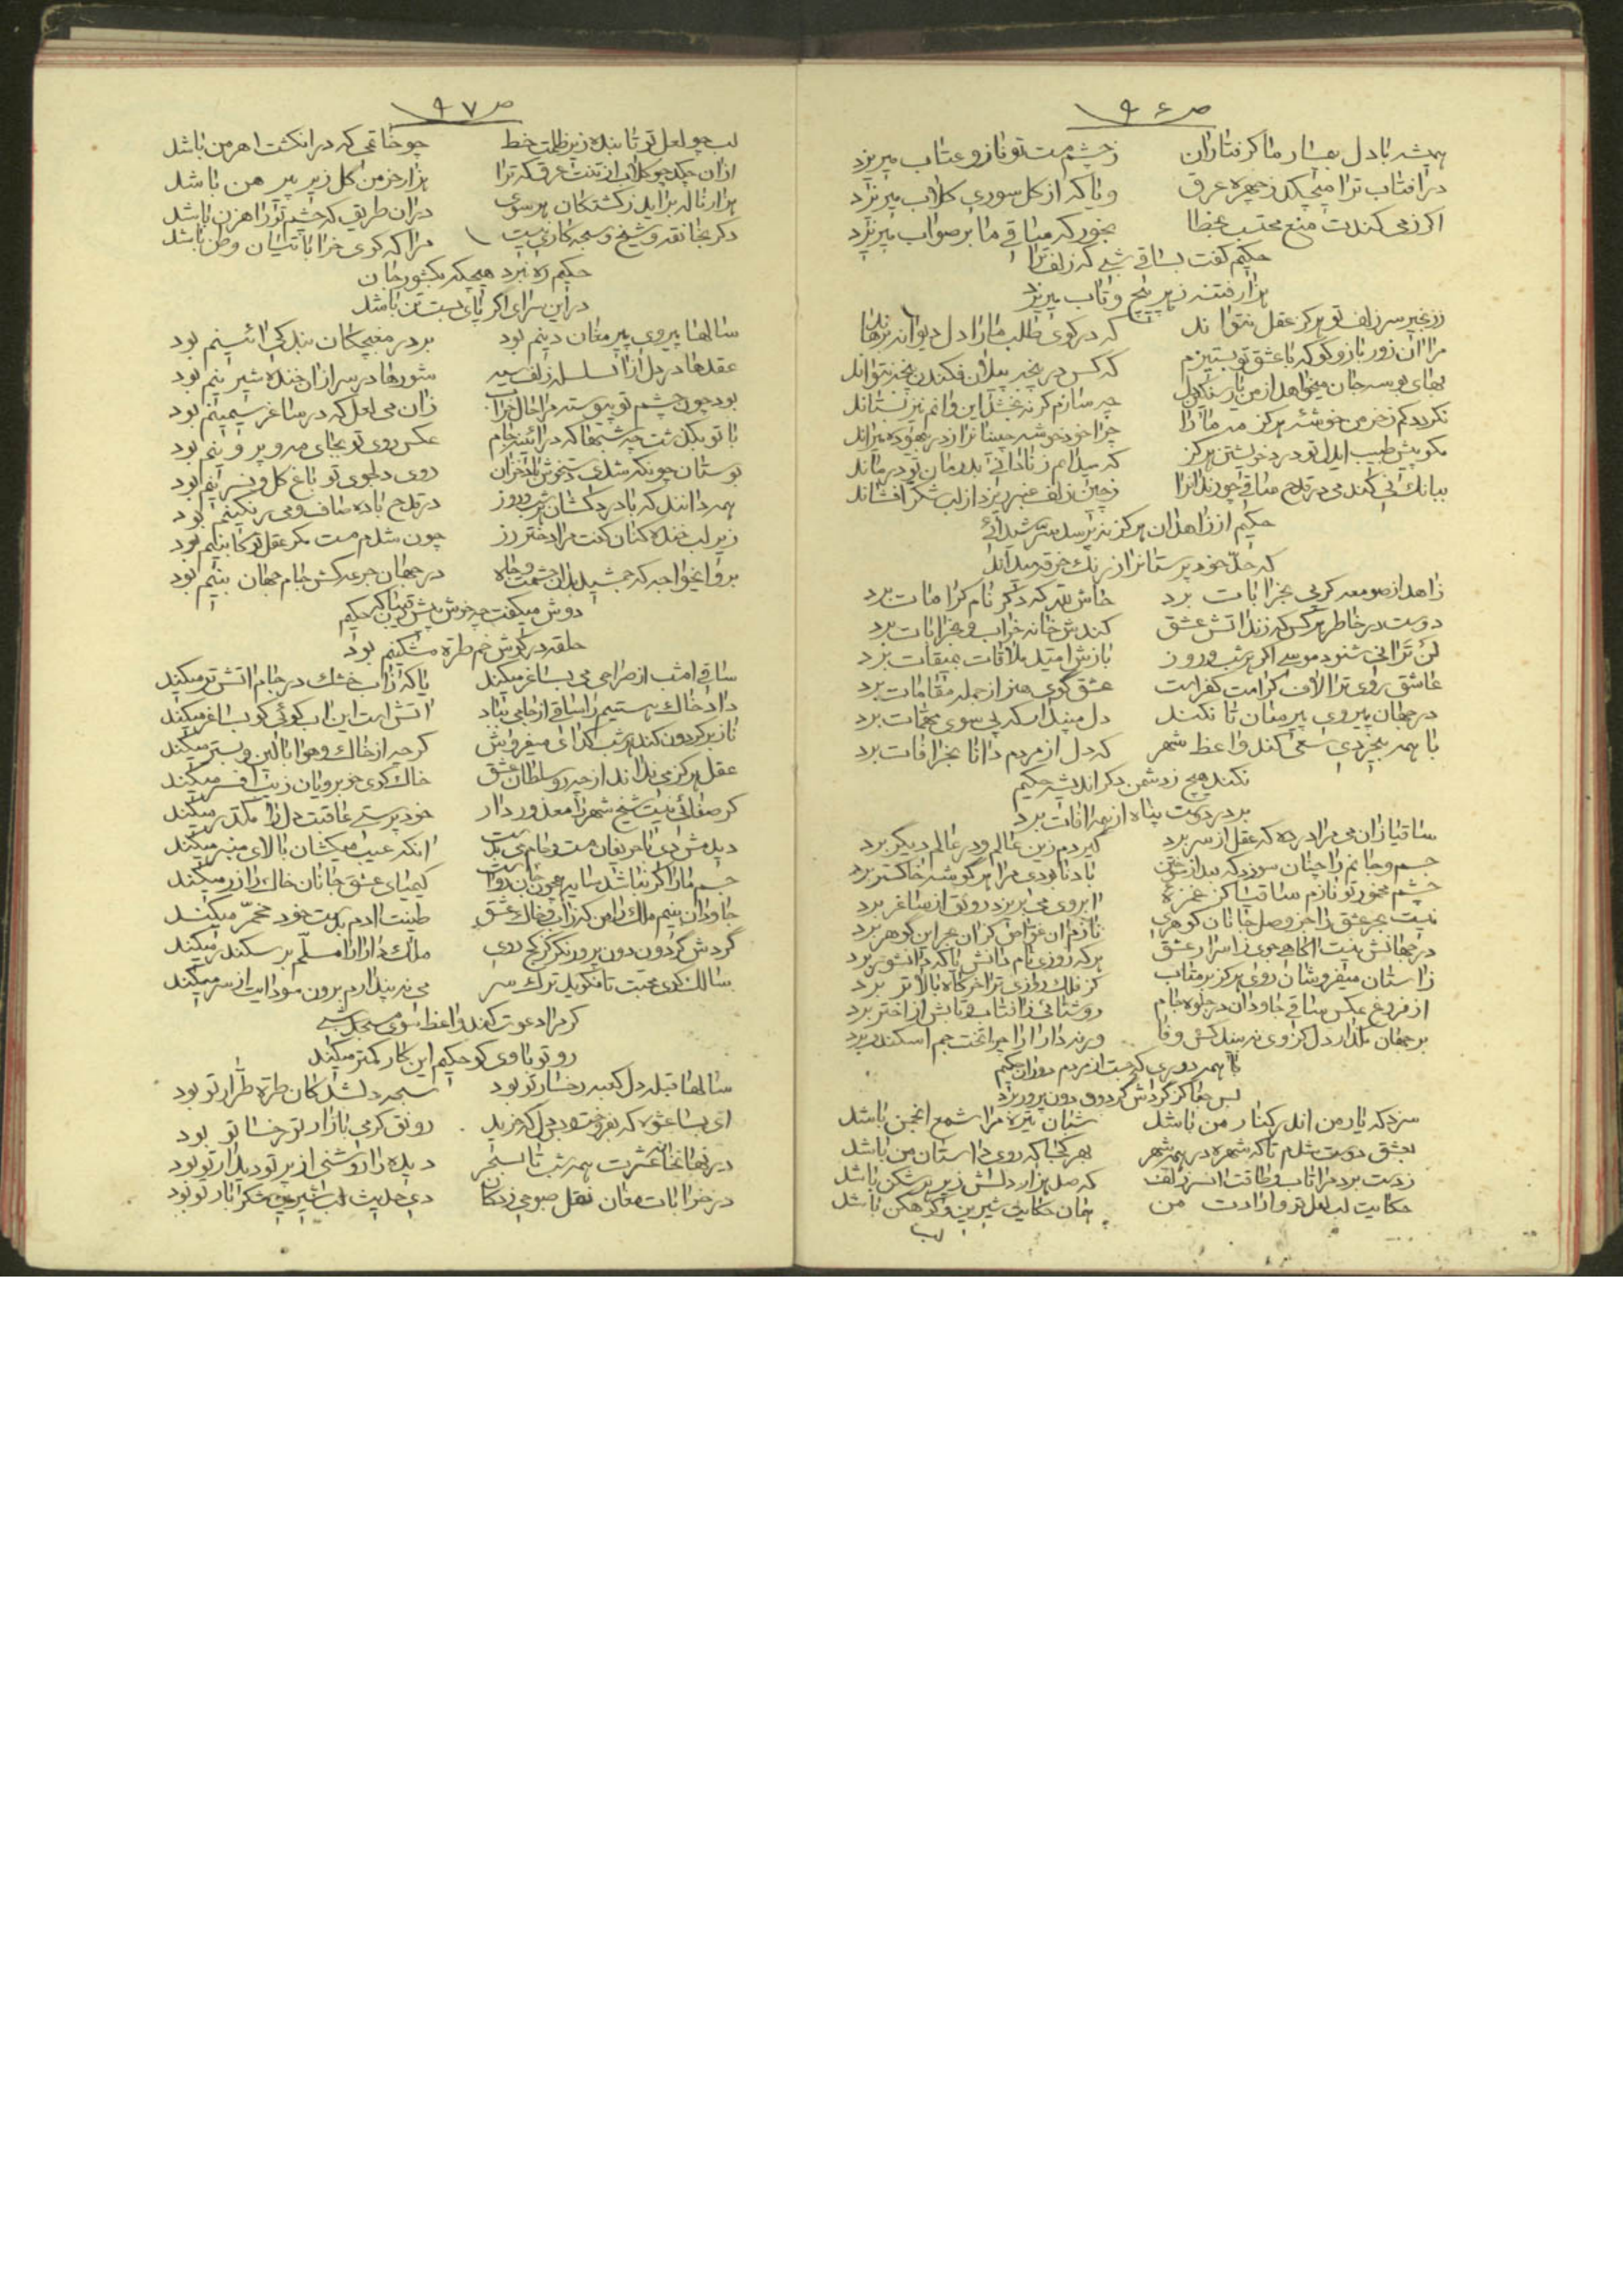 ص ۹۶
همیشه بادل بیمار ما گرفتاران    ز چشم مست تو ناز و عتاب میریزد
در آفتاب ترا میچکد ز چهره عرق    و یا که از گل سوری گلاب میریزد
اگر ز می کندت منع محتسب بخطا    بخور که ساقی ما بر صواب میریزد
حکیم گفت بساقی شبی که زلف ترا
هزار فتنه ز هر پیچ و تاب میریزد
ز زنجیر سر زلف تو هرگز عقل نتواند    که در کوی طلب ما را دل دیوانه برهاند
مرا آن زور بازو کو که با عشق تو بستیزم    که کس در پنجه پیلان فکندن پنجه نتواند
بهای بوسه جان میخواهد از من یار سنگین دل    چه سازم گر نه بخشد این و آنهم نیز نستاند
نگردد کم ز خرمن خوشه هرگز    چرا خود خوشه چینان را ز در بیهوده میراند
مگو پیش طبیب ایدل تو درد خویشتن هرگز    که میدانم ز نادانی بدرمان تو در ماند
بیانک نی کند می در قدح ساقی چو رندانرا    ز چین زلف عنبر ریزد از لب شکر افشاند
حکیم از زاهدان هرگز نپرسد سر شیدائی
که حد خود پرستانرا ز رنگ خرقه میداند
زاهد از صومعه گر پی بخرابات برد    حاش لله که دگر نام کرامات برد
دوست در خاطر هر کس که زند آتش عشق    کندش خانه خراب و بخرابات برد
لن ترانی شنود موسی اگر هر شب و روز    بازش امید ملاقات بمیقات برد
عاشق روی ترا لاف کرامت کفر است    عشق گوی هنر از جمله مقامات برد
در جهان پیروی پیر مغان تا نکند    دل مپندار که پی سوی مهمات برد
با همه بیخردی سعی کند واعظ شهر    که دل از مردم دانا بخرافات برد
نکند هیچ ز دشمن دگر اندیشه حکیم
بر در دوست پناه از همه آفات برد
ساقیا زان می مرا در ده که عقل از سر برد    گیردم زین عالم و در عالم دیگر برد
جسم و جانم را چنان سوزد که بعد از سوختن    باد نابودی مرا هر گوشه خاکستر برد
چشم مخمور تو نازم ساقیا کز غمزه    آبروی می بریزد رونق از ساغر برد
نیست بحر عشق را جز وصل جانان گوهری    نازم آن غواص کز آن بحر این گوهر برد
در جهانش نیست آگاهی جوی ز اسرار عشق    هر که روزی نام دانش یا که دانشور برد
ز آستان میفروشان روی هرگز بر متاب    کز فلک روزی ترا خرگاه بالاتر برد
از فروغ عکس ساقی جاودان در جلوه جام    روشنائی ز آفتاب و تابش از اختر برد
بر جهان مگذار دل کز وی نه بیند کس وفا    ورنه دارا را چرا تخت جم اسکندر برد
با همه دوری که جست از مردم دوران حکیم
بس جفا کز گردش گردون دون پرور برد
سزد که یار من اندر کنار من باشد    شبان تیره مرا شمع انجمن باشد
بعشق دوست شدم تا که شهره در همه شهر    بهر کجا که روی داستان من باشد
ز دست برد مرا تاب و طاقت آن سر زلف    که صد هزار دلش زیر هر شکن باشد
حکایت لب لعل تو و ارادت من    همان حکایت شیرین و کوهکن باشد
لب
ص ۹۷
لب چو لعل تو تابنده زیر ظلمت خط    چو خاتمی که در انگشت اهرمن باشد
از آن چکد چو گلاب از تنت عرق که ترا    هزار خرمن گل زیر پیرهن باشد
هزار ناله برآید ز کشتگان هر سوی    در آن طریق که چشم تو راهزن باشد
دگر بخانقه و شیخ و سبحه کاری نیست    مرا که کوی خراباتیان وطن باشد
حکیم ره نبرد هیچکه بکشور جان
در این سرای اگر پای بست تن باشد
سالها پیروی پیر مغان دینم بود    بر در مغبچکان بندگی آئینم بود
عقدها در دل از آن سلسله زلف سیه    شورها در سر از آن خنده شیرینم بود
بود چون چشم تو پیوسته مرا حال خراب    زان می لعل که در ساغر سیمینم بود
با تو بگذشت چه شبها که در آئینه جام    عکس روی تو بجای مه و پروینم بود
بوستان چونکه شدی دستخوش باد خزان    روی دلجوی تو باغ گل و نسرینم بود
همه دانند که با درد کشان هر شب و روز    در قدح باده صاف و می رنگینم بود
زیر لب خنده کنان گفت مرا دختر رز    چون شدم مست مگر عقل تو کابینم بود
برو ایخواجه که جمشید بدان حشمت و جاه    در جهان جرعه کش جام جهان بینم بود
دوش میگفت چه خوش پیش رقیبان که حکیم
حلقه در گوش خم طره مشکینم بود
ساقی امشب از صراحی می بساغر میکند    یا که ز آب خشک در جام آتش تر میکند
داد خاک هستیم را ساقی از جامی بباد    آتش است این آب گوئی کو بساغر میکند
ناز بر گردون کند هر شب گدای میفروش    گر چه از خاک و هوا بالین و بستر میکند
عقل هرگز می نداند از چه رو سلطان عشق    خاک کوی خوبرویان زیب افسر میکند
گر صفائی نیست شیخ شهر را معذور دار    خودپرستی عاقبت دل را مکدر میکند
دیدمش دی با حریفان مست و جام می بدست    آنکه عیب میکشان بالای منبر میکند
جسم ما را گر نباشد سایه چون جان رواست    کیمیای عشق جانان خاک را زر میکند
جاودان بینم ملک را من که ز آب و خاک عشق    طینت آدم بدست خود مخمر میکند
گردش گردون دون پرور نگر کز کج روی    ملک دارا را مسلم بر سکندر میکند
سالک کوی محبت تا نگوید ترک سر    می نه پندارم برون سودایت از سر میکند
گر مرا دعوت کند واعظ بسوی مسجد شبی
رو تو با وی گو حکیم این کار کمتر میکند
سالها قبله دل کعبه رخسار تو بود    سبحه دلشدگان طره طرار تو بود
ای بسا عشوه که بفروخت و بس دل که خرید    رونق گرمی بازار تو رخسار تو بود
در نهانخانه عشرت همه شب تا بسحر    دیده را روشنی از پرتو دیدار تو بود
در خرابات مغان نقل صبوحی زدگان    دی حدیث لب شیرین شکر بار تو بود